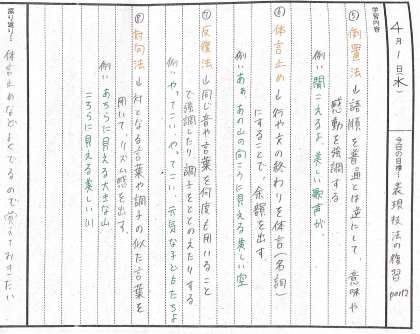 4月1日(水)
今日の目標：表現技法の復習 part2
学習内容
⑤倒置法→語順を普通とは逆にして、意味や
感動を強調する
例い聞こえるよ、美しい歌声が。
⑥体言止め→行や文の終わりを体言（名詞）
にすることで、余韻を出す。
例いああ、あの山の向こうに見える美しい空
⑦反復法→同じ音や言葉を何度も用いること
で強調したり調子をととのえたりする
例いやってこい、やってこい、元気な子どもたちよ
⑧対句法→対となる言葉や調子の似た言葉を
用いて、リズム感を出す。
例いあちらに見える大きな山
こちらに見える美しい川
振り返り：
体言止めなどよくでるので覚えておきたい